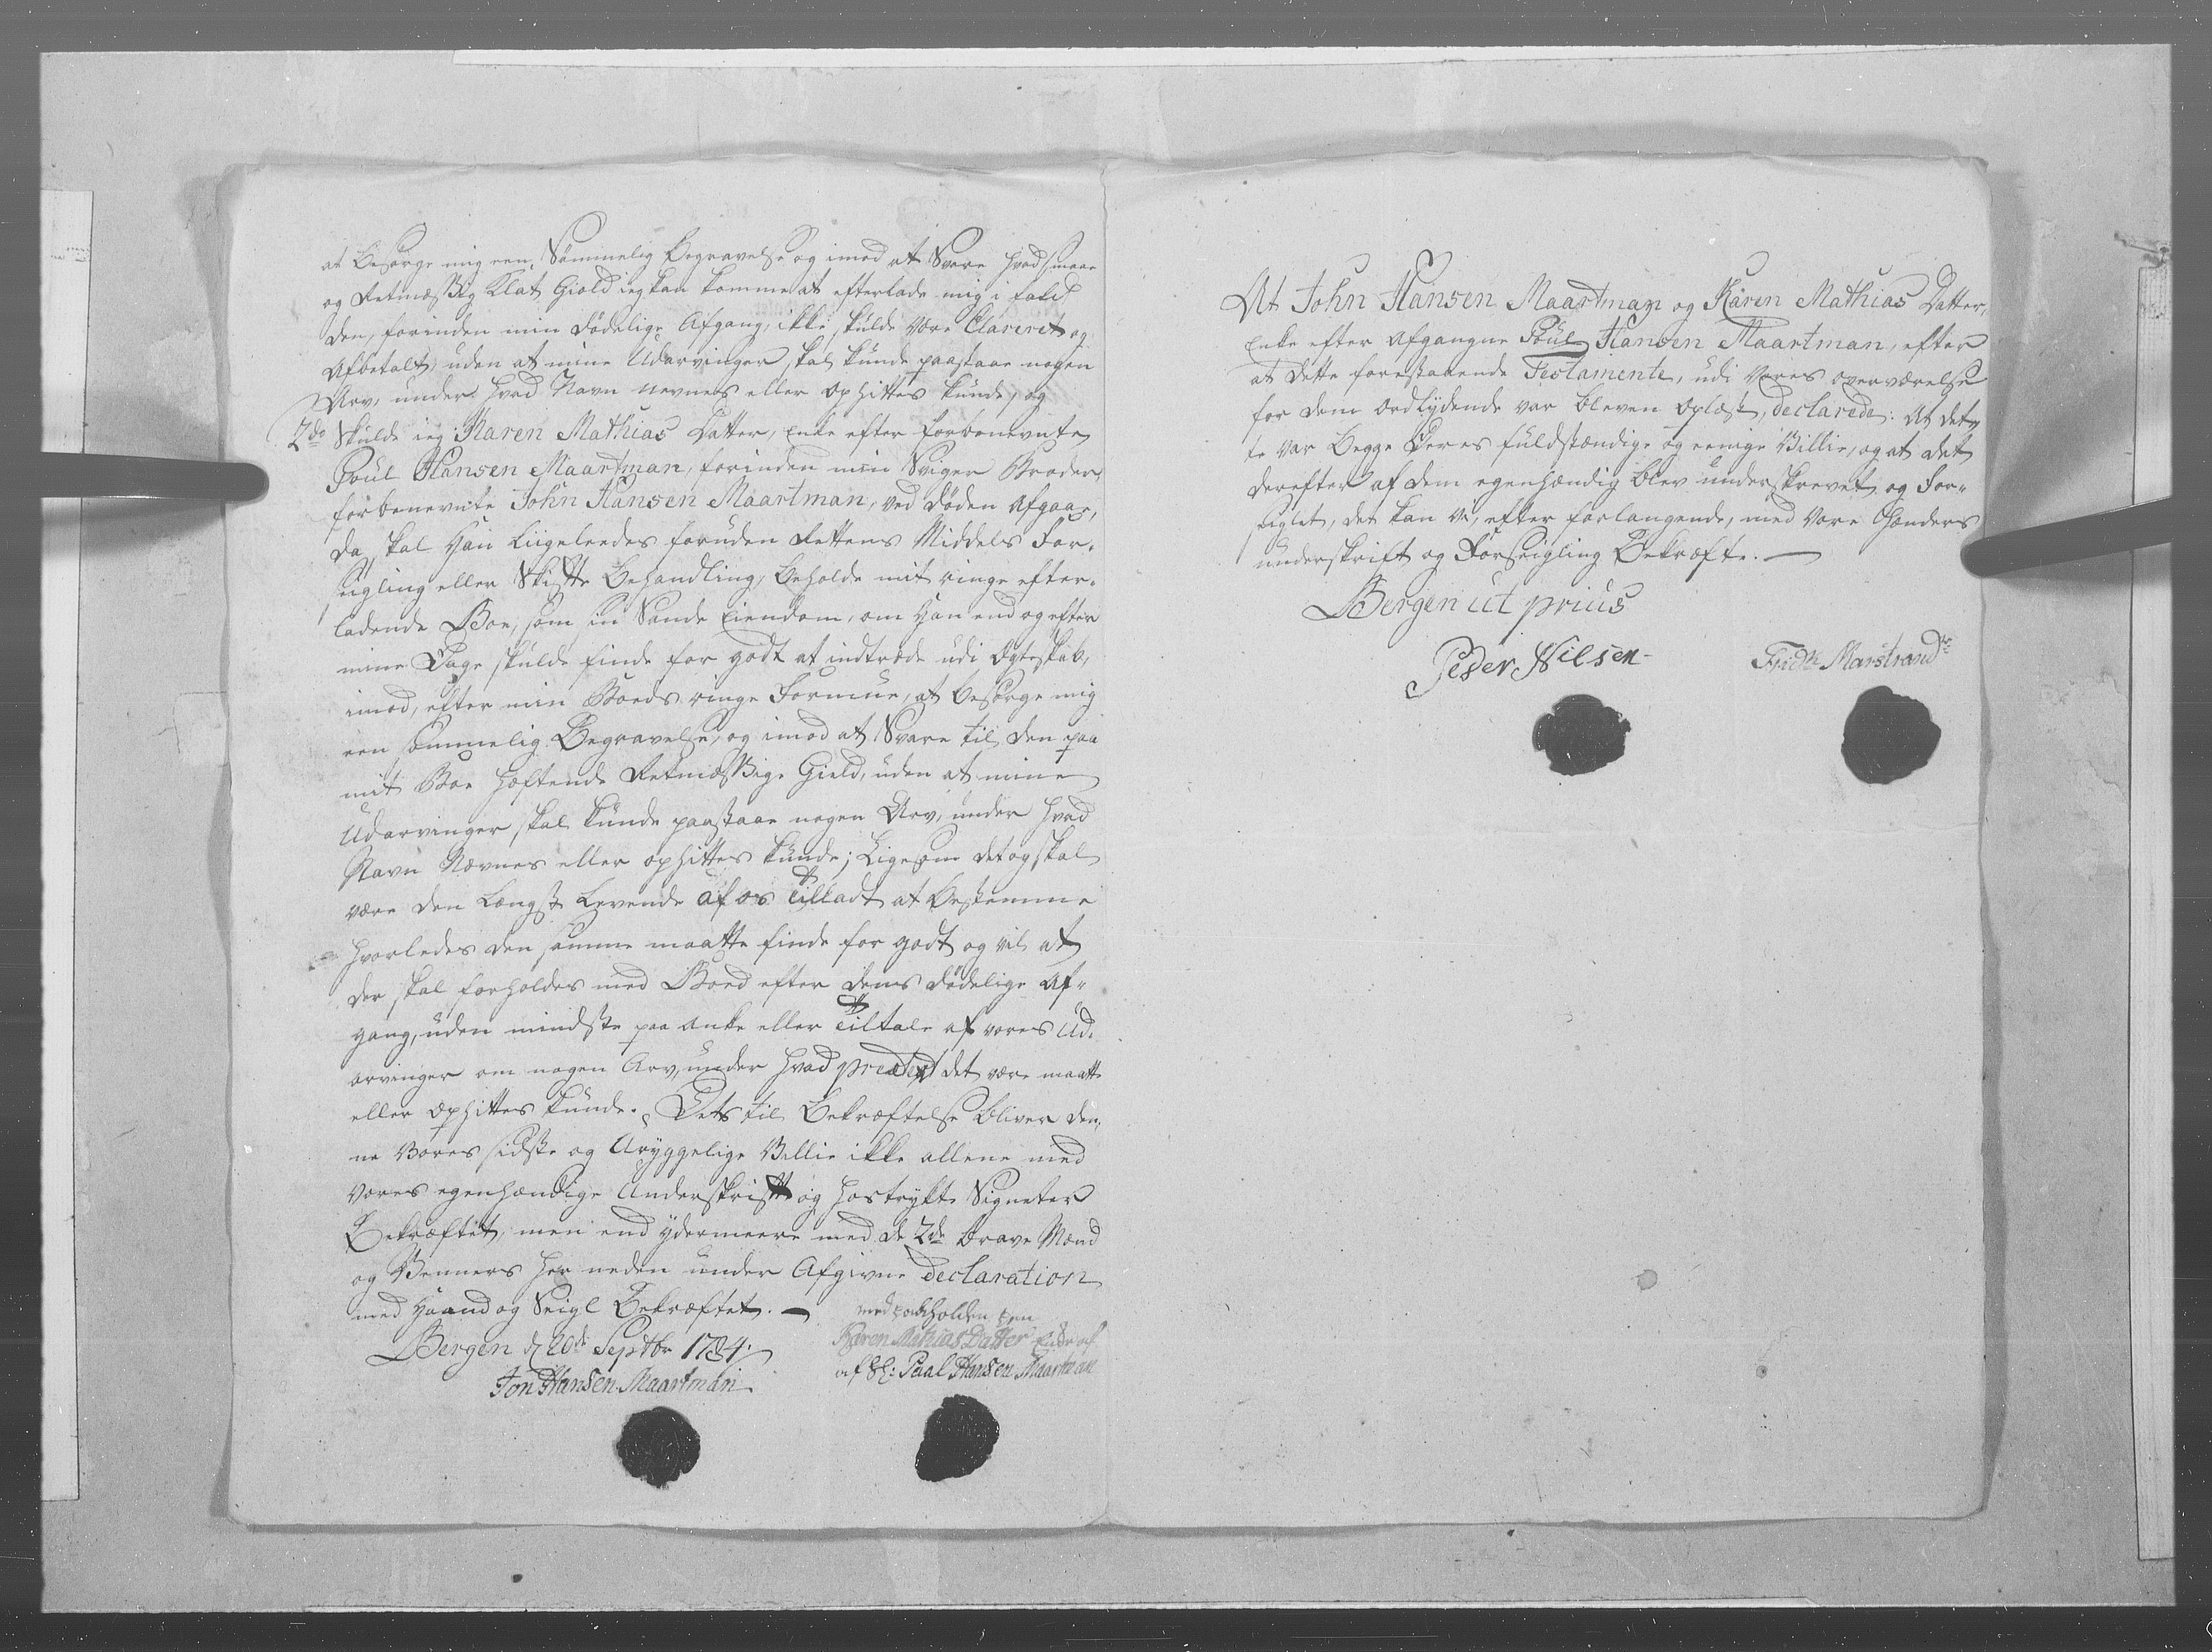 at Besørge mig een Sømmelig Begravelse og imod at Svare hvad smaae
og Retmæssig Klat Giæld ieg kan komme at efterlade mig i fald
den, forinden min dødelige Afgang, ikke skulde være Clareret og
Afbetalt, uden at mine Udarvinger skal kunde paastaae nogen
Arv, under hvad Navn nevnes eller ophittes kunde, og
2do Skulde ieg Karen Mathias Datter, Enke efter forbenevnte
Poul Hansen Maartman, forinden min Sviger Broder,
forbenevnte John Hansen Maartman, ved Døden afgaar,
da skal Han liigeleedes foruden Rettens Middels For-
sigling eller Skifte Behandling, beholde mit ringe efter-
ladende Boe, som sin Sande Eiendom, om Han end og efter
mine Dage skulde finde for godt at indtræde udi Egteskab,
imod, efter min Boeds ringe Formue, at besørge mig
een sømmelig Begravelse, og imod at Svare til den paa
mit Boe heftende Retmæssige Gield, uden at mine
Udarvinger skal kunde paastaae nogen Arv, under hvad
Navn Nævnes eller ophittes kunde; Ligesom det og skal
være den Længst Levende af os Tilladt at bestemme
hvorledes den samme maatte finde for godt og vil at
der skal forholdes med Boed efter dens dødelige Af-
gang, uden mindste paa anke eller Tiltale af vores Ud-
arvinger om nogen Arv, under hvad prætext det være maatte
eller ophittes kunde. Dets til Bekræftelse bliver den-
ne vores sidste og Uryggelige Villie ikke allene med
vores egenhændige Underskrift og hostrykte Signeter
Bekræftet, men end ydermeere med de 2de brave Mænd
og Venners her neden under Afgivne Declaration
med Haand og Seigl Bekræftet. —
Bergen d 20de Septbr 1784.
Jon Hansen Maartman
med holden Pen
Karen Mathias Datter Enke
af Sl: Paal Hansen Maartman
At John Hansen Maartman og Karen Mathias Datter,
Enke efter afgangne Poul Hansen Maartman, efter
at dette forestaaende Testamente, udi vores overværelse
for dem ordlydende var bleven oplæst, declarede: At det-
te var begge deres fuldstændige og eenige Villie, og at det
derefter af dem egenhændig blev underskrevet og For-
siglet, det kan vi, efter forlangende, med vore Hænders
underskrift og Forseigling Bekræfte. —
Bergen ut prius
Peder Nilsen
Fridr: Marstrand